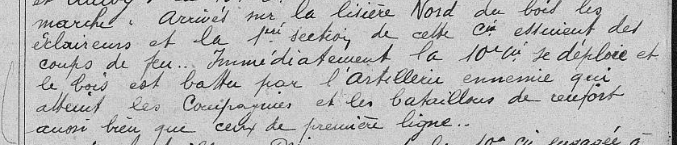 marche. Arrivés sur la lisière Nord du bois les
éclaireurs et la 1ère section de cette Cie essuient des
coups de feu... Immédiatement la 10e Cie se déploie et
le bois est battu par l'Artillerie ennemie qui
atteint les Compagnies et les bataillons de renfort
aussi bien que ceux de première ligne..
10e Cie engagée à